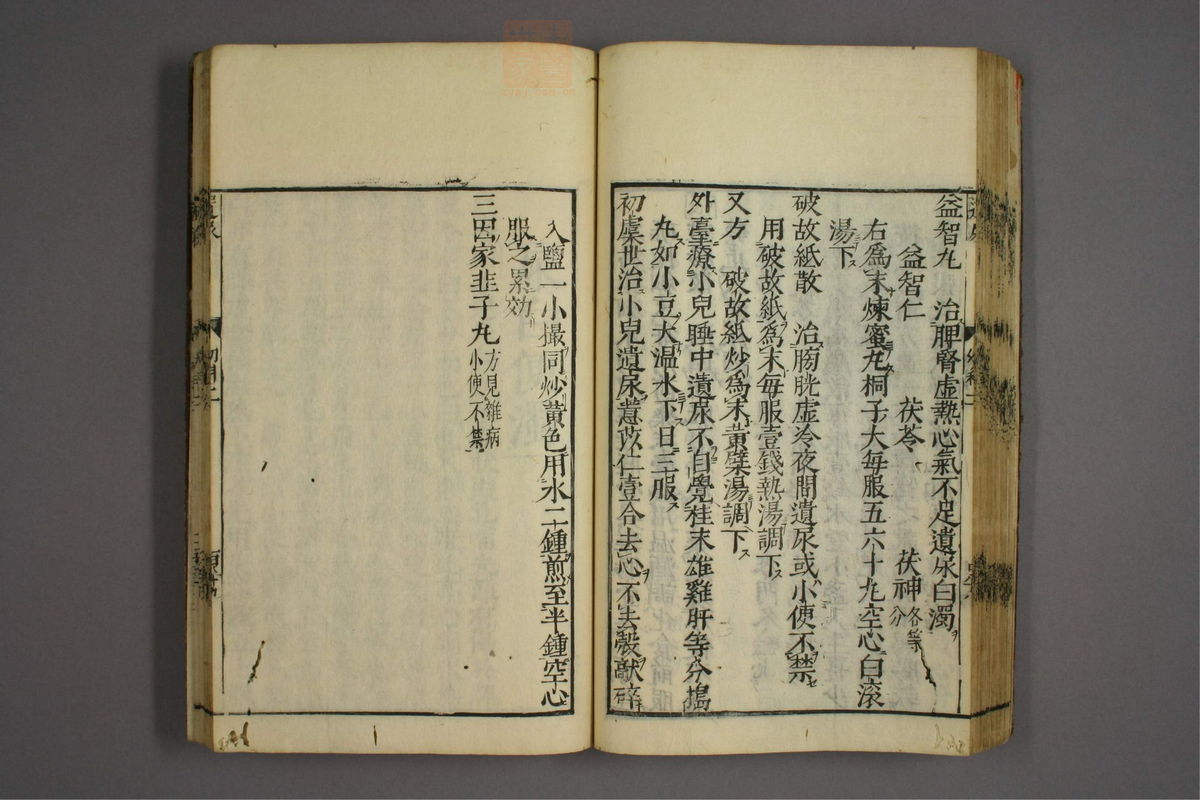 益智丸 治脾腎虛熱心氣不足遺尿白濁ヲ
益智仁 茯苓 茯神各等分
右爲末煉蜜丸桐子大每服五六十丸空心白滚
湯下ス
破故紙散 治膀胱虛冷夜間遺尿或小便不禁
用破故紙爲末每服壹錢熱湯調下ス
又方 破故紙炒爲末黄蘗湯調下ス
外臺療小兒睡中遺尿不自覺桂末雄雞肝等分搗
丸如小豆大温水下日三服
初虞世治小兒遺尿薏苡仁壹合去心不去殼敲碎
入鹽一小撮同炒黄色用水二鍾煎至半鍾空心
服之累効
三因家韭子丸方見雜病小便不禁